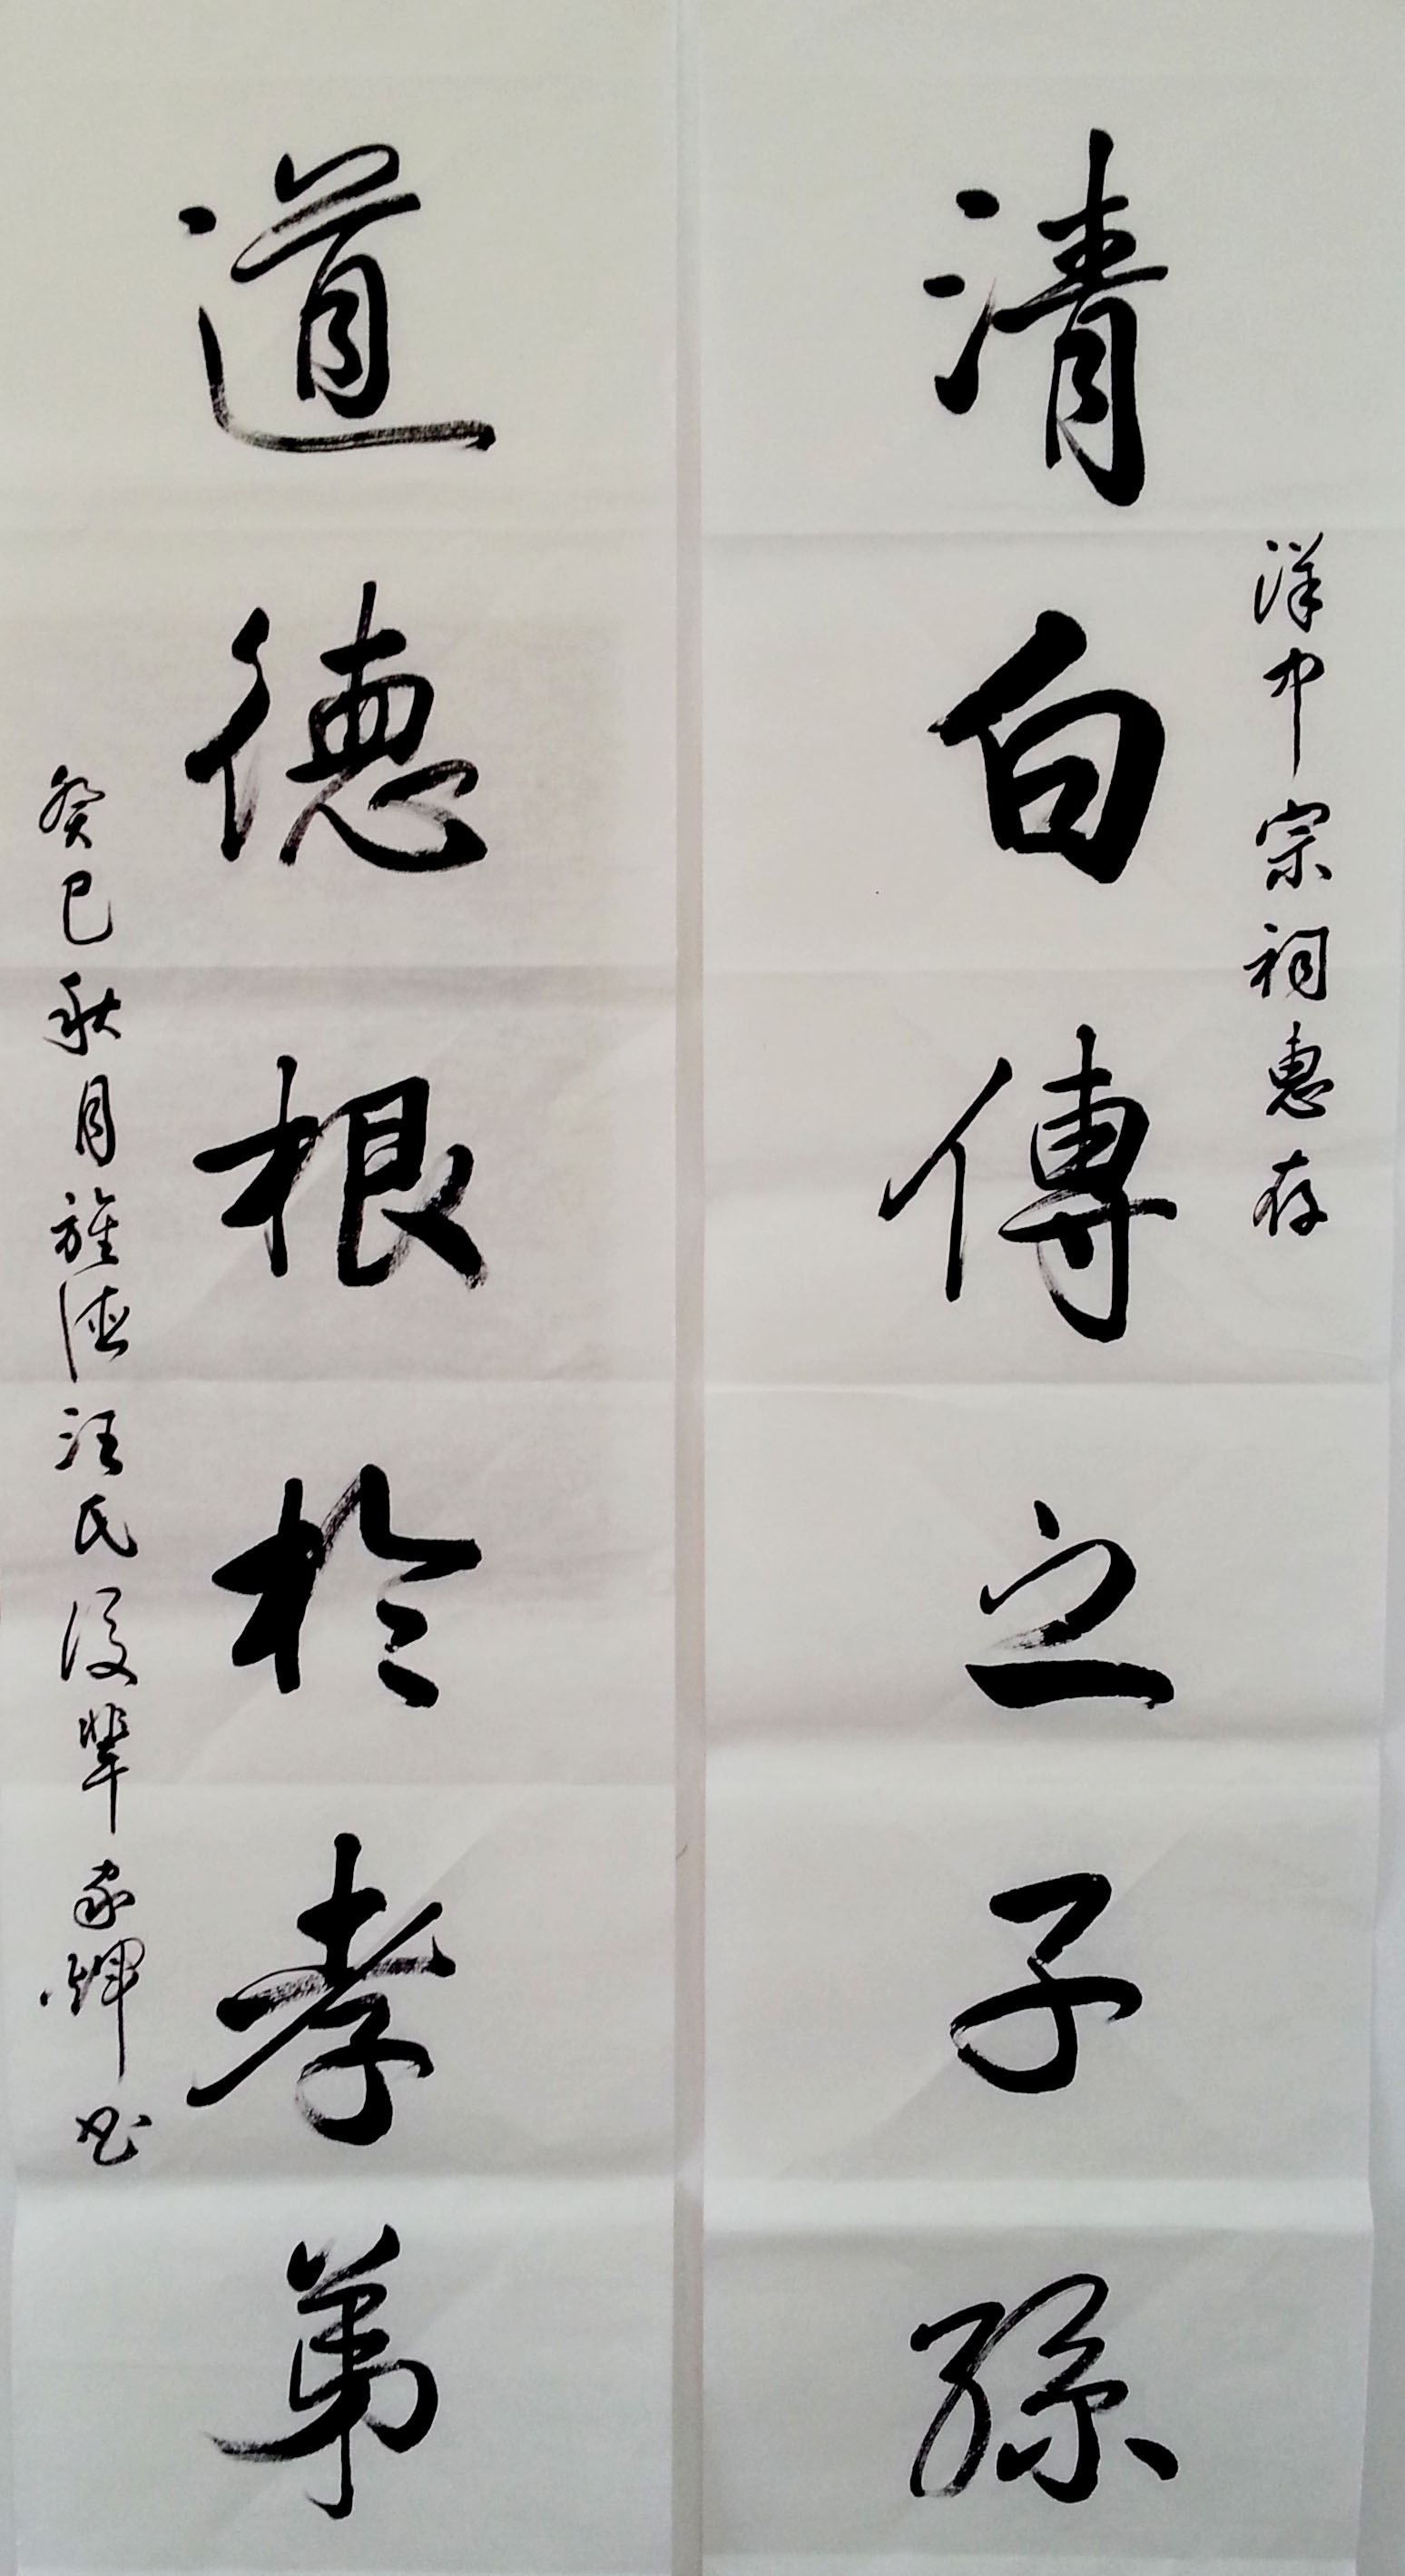 洋中宗祠惠存
清白傳之子孫
道德根於孝弟
癸巳秋月旌德汪氏後輩家輝书